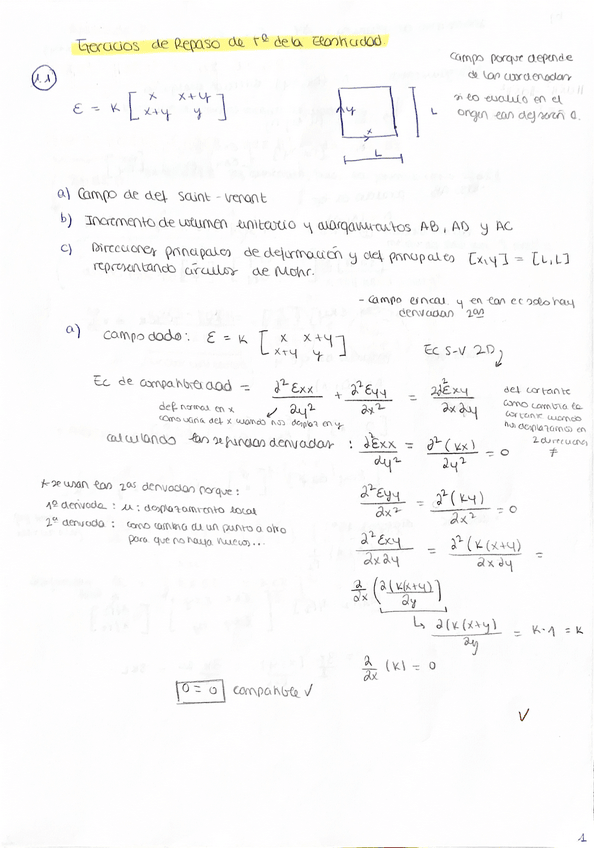 Ejercicios de Repaso de Tª de la Elasticidad
1.1
ε = K [ x x+y
x+y y ]
y
x
L
L
campo porque depende
de las coordenadas
si lo evaluo en el
origen las def serán 0.
a) Campo de def Saint-Venant
b) Incremento de volumen unitario y alargamientos AB, AD y AC
c) Direcciones principales de deformación y def principales [x,y] = [L,L]
representando círculos de Mohr.
- campo lineal y en las ec solo hay
derivadas 2as
a) campo dado: ε = K [ x x+y
x+y y ]
Ec S-V 2D
Ec de compatibilidad = ∂²εxx/∂y² + ∂²εyy/∂x² = 2∂²εxy/∂x∂y
def normal en x
como varia def x cuando nos desplaz en y
def cortante
como cambia la
cortante cuando
nos desplazamos en
2 direcciones
≠
calculando las segundas derivadas: ∂²εxx/∂y² = ∂²(Kx)/∂y² = 0
* se usan las 2as derivadas porque:
1ª derivada: u: desplazamiento local
2ª derivada: como cambia de un punto a otro
para que no haya huecos...
∂²εyy/∂x² = ∂²(Ky)/∂x² = 0
∂²εxy/∂x∂y = ∂²(K(x+y))/∂x∂y =
∂/∂x (∂(K(x+y))/∂y)
↳ ∂(K(x+y))/∂y = K·1 = K
∂/∂x (K) = 0
0 = 0 compatible ✓
✓
1